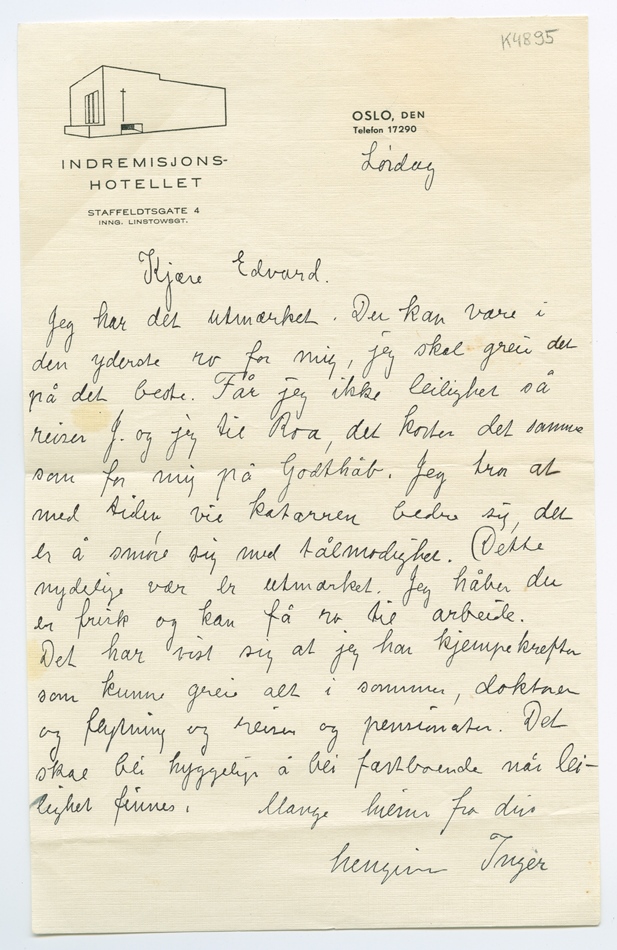 K4895
INDREMISJONS-
HOTELLET
STAFFELDTSGATE 4
INNG. LINSTOWSGT.
OSLO, DEN
Telefon 17290
Lørdag
Kjære Edvard.
Jeg har det utmærket. Du kan være i
den yderste ro for mig, jeg skal greie det
på det beste. Får jeg ikke leilighet så
reiser J. og jeg til Roa, det koster det samme
som for mig på Godthåb. Jeg tror at
med tiden vil katarren bedre sig, det
er å smøre sig med tålmodighet. Dette
nydelige vær er utmærket. Jeg håber du
er frisk og kan få ro til arbeide.
Det har vist sig at jeg har kjempekrefter
som kunne greie alt i sommer, doktorer
og flytning og reiser og pensionater. Det
skal bli hyggelig å bli fastboende når lei-
lighet finnes. Mange hilsner fra din
hengivne Inger